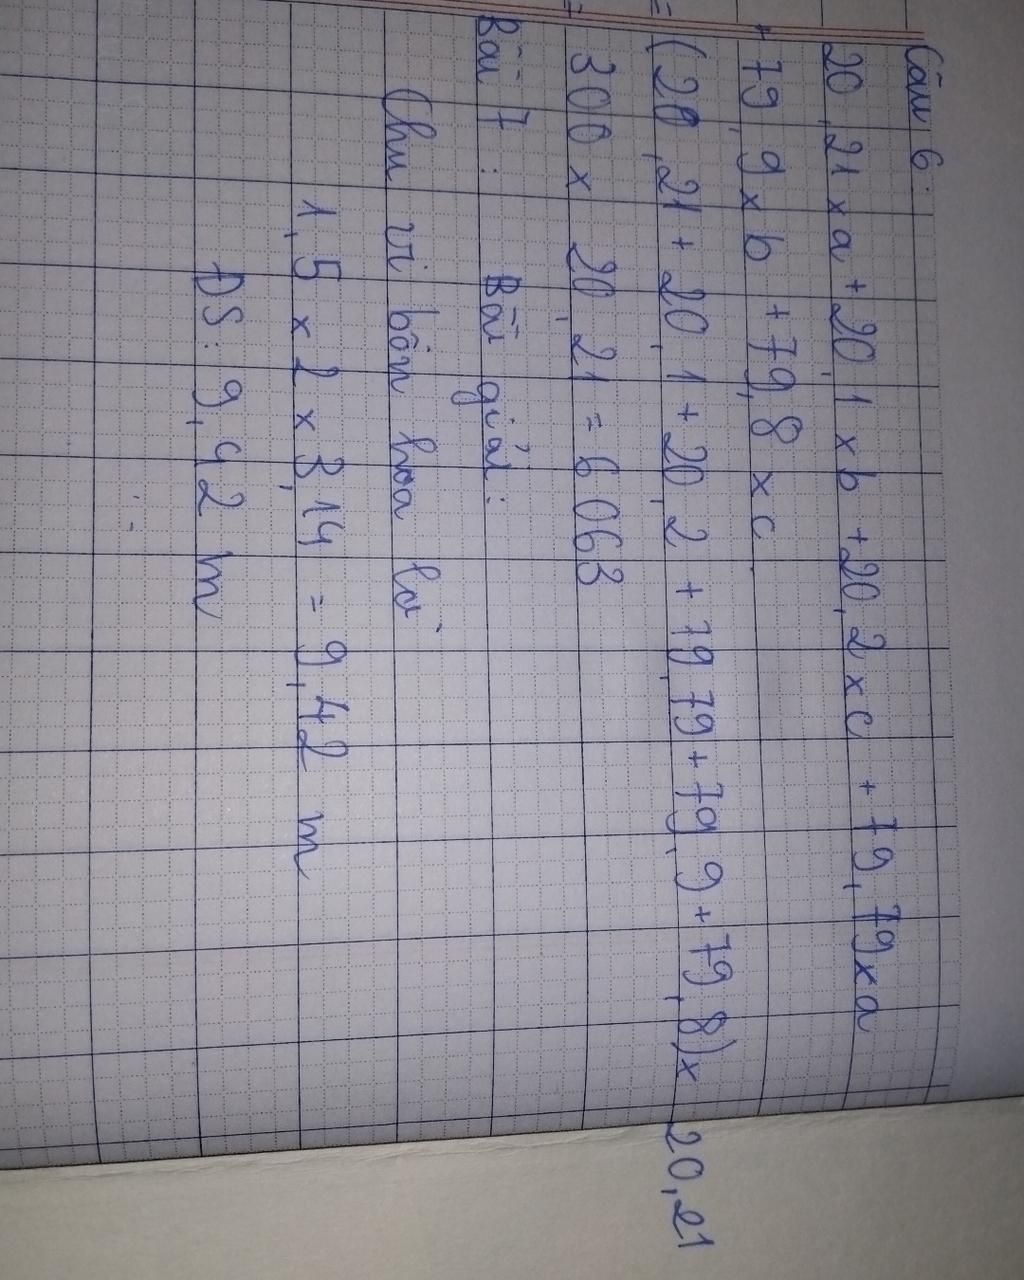 Câu 6:
20,21 x a + 20,1 x b + 20,2 x c + 79,79 x a
+ 79,9 x b + 79,8 x c
= (20,21 + 20,1 + 20,2 + 79,79 + 79,9 + 79,8) x 20,21
= 300 x 20,21 = 6 063
Bài 7: Bài giải:
Chu vi bồn hoa là:
1,5 x 2 x 3,14 = 9,42 m
ĐS: 9,42 m